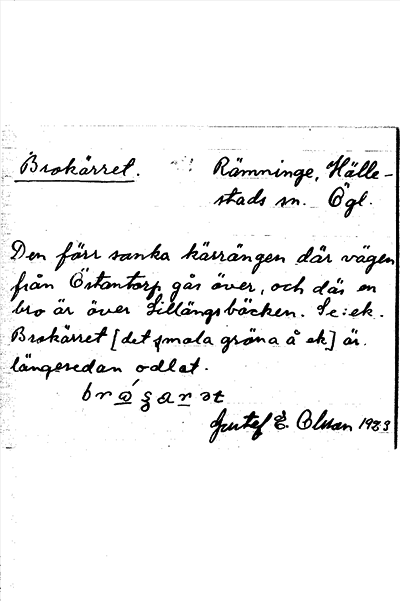 Brokärret. Rämninge, Hälle-
stads sn. Ögl.
Den förr sanka kärrängen där vägen
från Östantorp går över, och där en
bro är över Lillängsbäcken. Se: ek.
Brokärret [det smala gröna å ek] är
längesedan odlat.
Gustef E. Olsson 1923